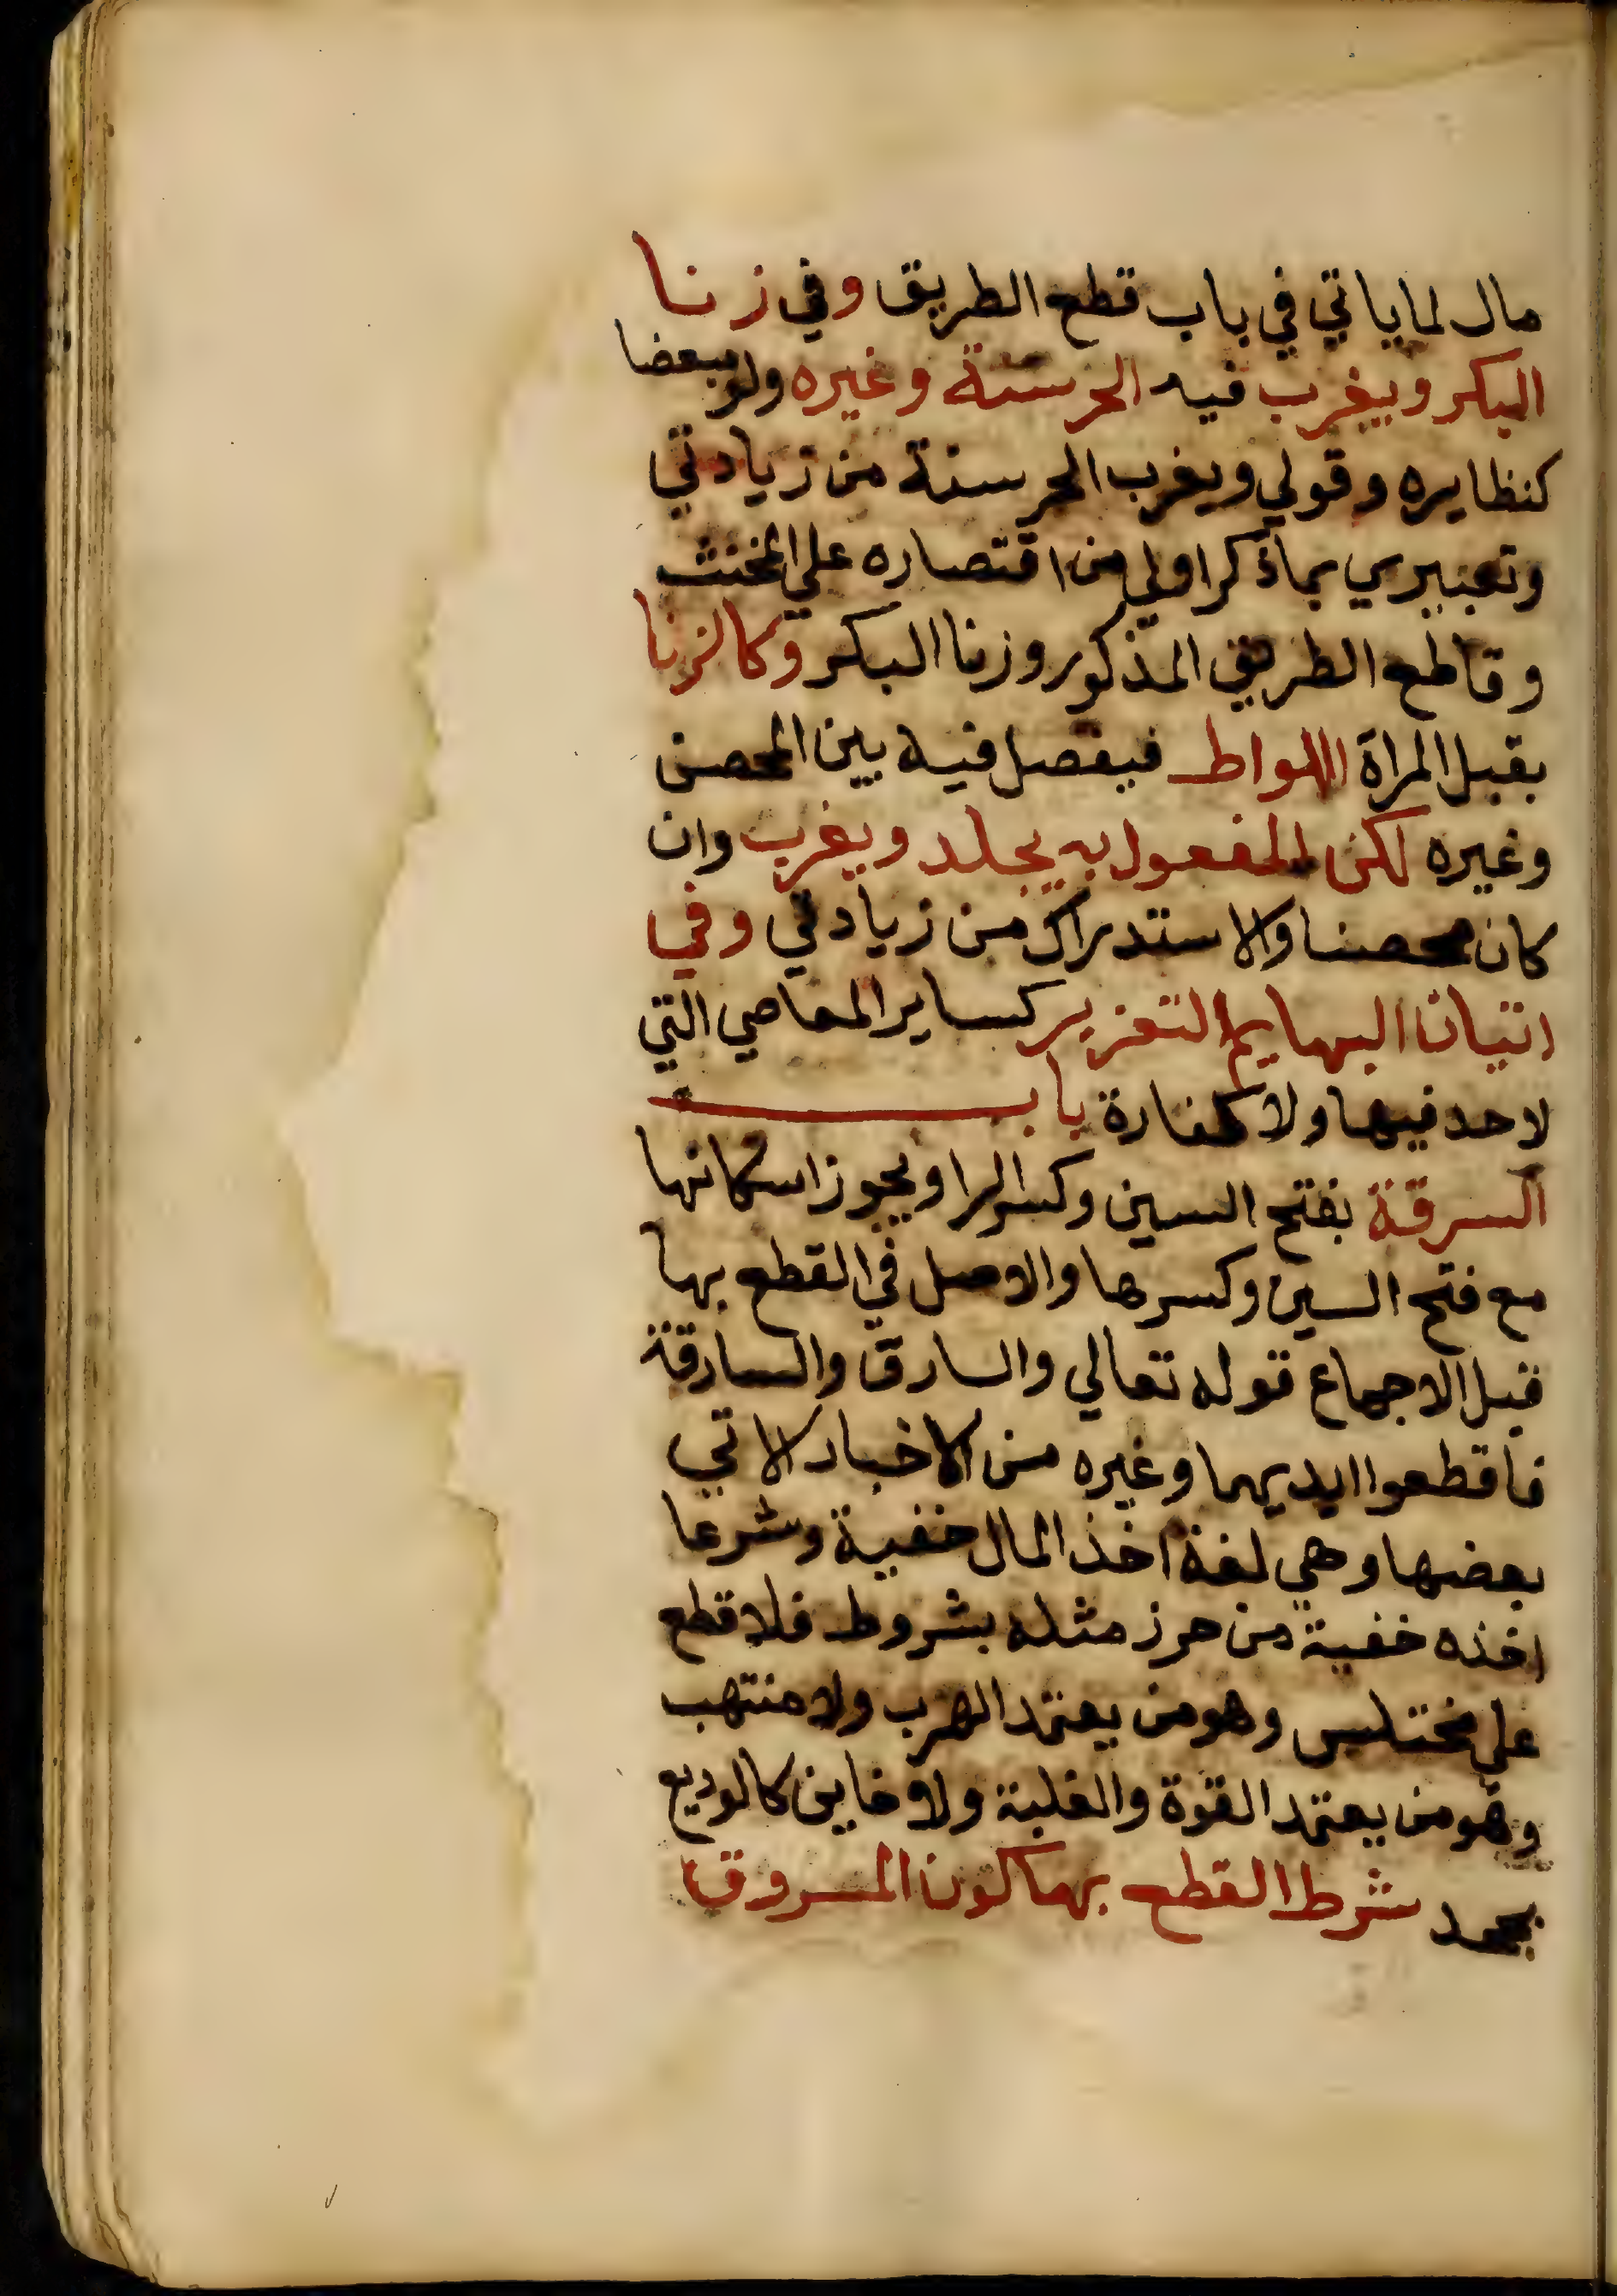 مال لما ياتي في باب قطع الطريق وفي زنا
البكر ويغرب فيه الحر سنة وغيره ولو مبعضا
كنظايره وقولي ويغرب الحر سنة من زيادتي
وتعبيري بما ذكر اولي من اقتصاره علي المخنث
وقاطع الطريق المذكور وزنا البكر وكالزنا
بقبل المراة اللواط فيفصل فيه بين المحصن
وغيره لكن المفعول به يجلد ويغرب وان
كان محصنا والاستدراك من زيادتي وفي
اتيان البهايم التعزير كساير المعاصي التي
لا حد فيها ولا كفارة باب
السرقة بفتح السين وكسر الرا ويجوز اسكانها
مع فتح السين وكسرها والاصل في القطع بها
قبل الاجماع قوله تعالي والسارق والسارقة
فاقطعوا ايديهما وغيره من الاخبار الاتي
بعضها وهي لغة اخذ المال خفية وشرعا
اخذه خفية من حرز مثله بشروط فلا قطع
علي مختلس وهو من يعتمد الهرب ولا منتهب
وهو من يعتمد القوة والغلبة ولا خاين كالوديع
يجحد شرط القطع بها كون المسروق